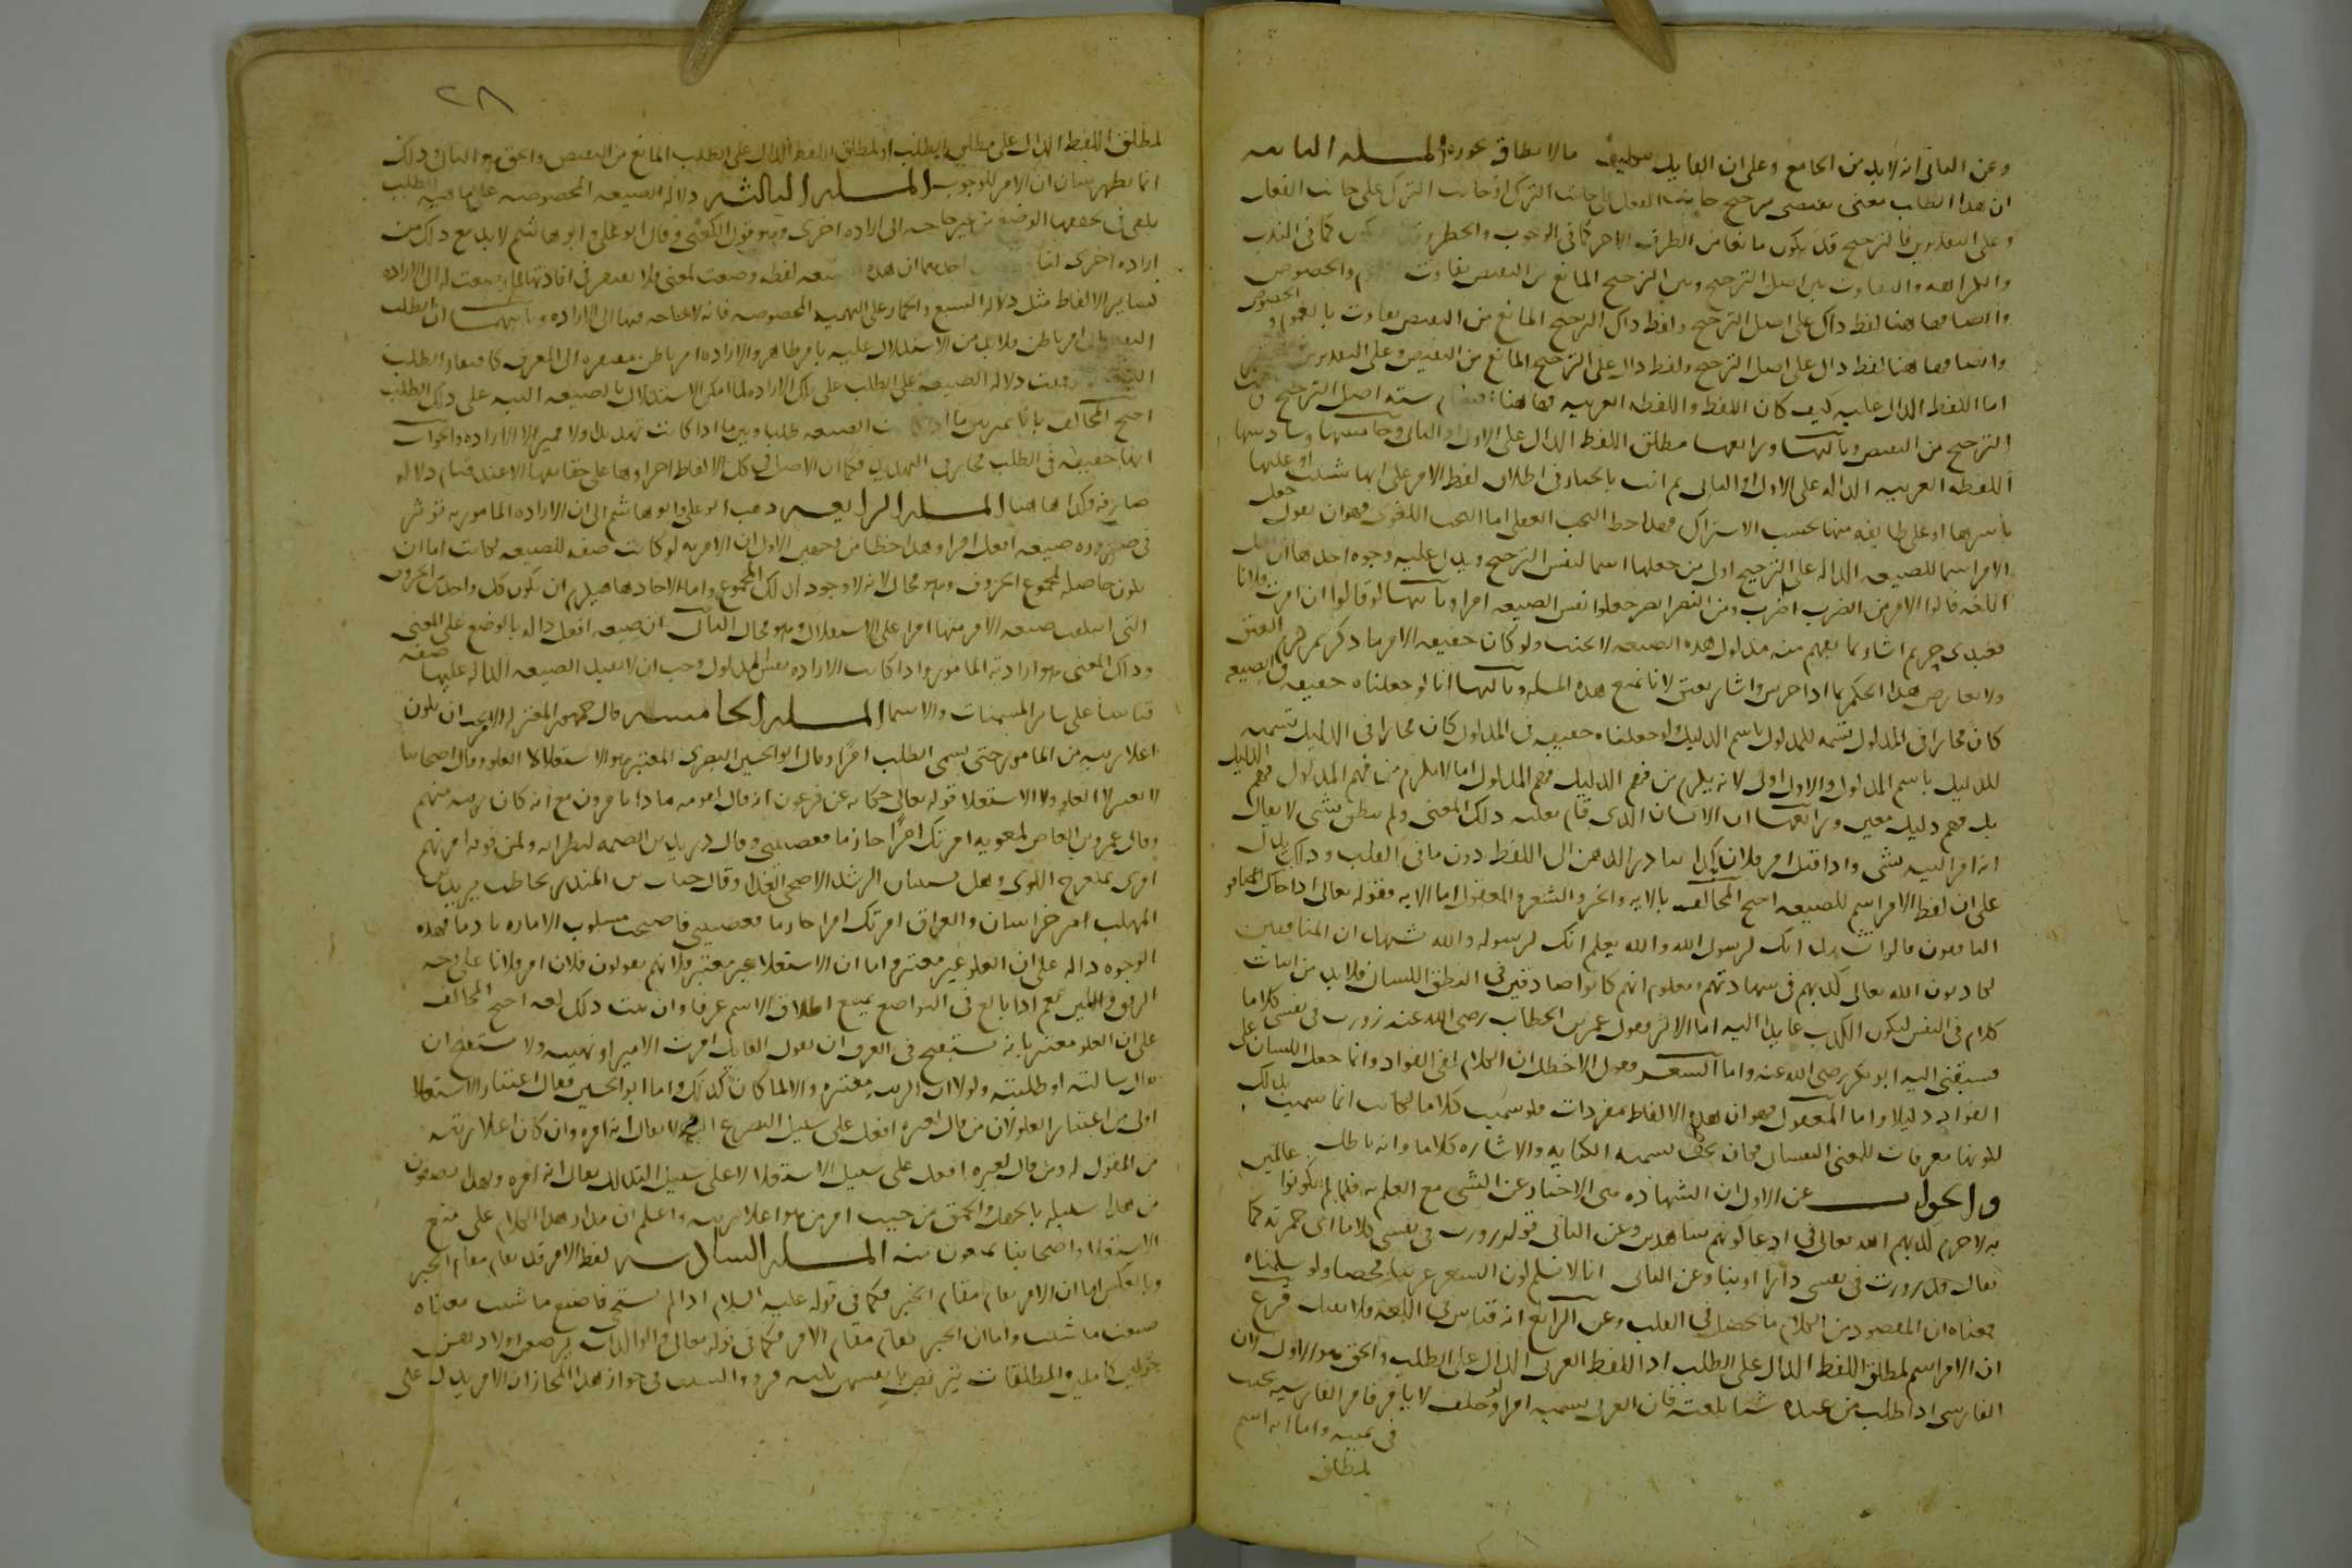 وعن الثاني انه لابد من الجامع وعلى ان القايل بتكليف ما لا يطاق يجوزه المسلة الثانية
ان هذا الطلب معنى يقتضي ترجيح جانب الفعل على جانب الترك او جانب الترك على جانب الفعل
وعلى التقديرين فالترجيح قد يكون مانعا من الطرف الاخر كما في الوجوب والحظر وقد كما في الندب
والكراهة والتفاوت بين اصل الترجيح وبين الترجيح المانع من النقيض تفاوت والخصوص
وايضا فهاهنا لفظ دال على اصل الترجيح ولفظ دال الترجيح المانع من النقيض تفاوت بالعموم والخصوص
وايضا فهاهنا لفظ دال على اصل الترجيح ولفظ دال على الترجيح المانع من النقيض وعلى التقديرين
اما اللفظ الدال عليه كيف كان اللفظ واللفظة العربية فهاهنا ستة اصل الترجيح
الترجيح من النقيض وثالثها ورابعها مطلق اللفظ الدال على الاول او الثاني وخامسها وسادسها
اللفظة العربية الدالة على الاول او الثاني ثم انت بالخيار في اطلاق لفظ الامر على ايها شئت او عليها
باسرها او على طايفة منها بحسب الاشتراك فهذا حظ البحث العقلي اما البحث اللغوي فهو ان نقول جعل
الامر اسما للصيغة الدالة على الترجيح اولى من جعلها اسما لنفس الترجيح ويدل عليه وجوه احدها ان اهل
اللغة قالوا الامر من الضرب اضرب ومن النصر انصر جعلوا نفس الصيغة امرا وثانيها لو قال ان امرت فلانا
فعبدي حر ثم اشار بما يفهم منه مدلول هذه الصيغة لا يعتق ولو كان حقيقة الامر ما ذكرتم لزم العتق
ولا يعارض هذا الحكم بما اذا خرس واشار يعتق لانا نمنع هذه المسلة وثالثها انا لو جعلناه حقيقة في الصيغة
كان مجازا في المدلول تسمية للمدلول باسم الدليل ولو جعلناه حقيقة في المدلول كان مجازا في الدليل تسمية
للدليل باسم المدلول والاول اولى لانه يلزم من فهم الدليل فهم المدلول اما لا يلزم من فهم المدلول فهم الدليل
بل فهم دليل معين ورابعها ان الانسان الذي قام بقلبه ذلك المعنى ولم ينطق بشي لا يقال
انه امر البتة بشي واذا قيل امر فلان بكذا تبادر الذهن الى اللفظ دون ما في القلب وذلك يدل
على ان لفظ الامر اسم للصيغة احتج المخالف بالاية والخبر والشعر والمعقول اما الاية فقوله تعالى اذا جاك المنافقون
قالوا نشهد انك لرسول الله والله يعلم انك لرسوله والله يشهد ان المنافقين
لكاذبون الله تعالى كذبهم في شهادتهم ومعلوم انهم كانوا صادقين في النطق اللساني فلابد من اثبات
كلام في النفس ليكون الكذب عايدا اليه اما الاثر فقول عمر بن الخطاب رضي الله عنه زورت في نفسي كلاما
فسبقني اليه ابو بكر رضي الله عنه واما الشعر فقول الاخطل ان الكلام لفي الفواد وانما جعل اللسان على
الفواد دليلا واما المعقول فهو ان هذه الالفاظ مفردات فلو سميت كلاما لكانت انما سميت بذلك
لكونها معرفات للمعنى النفساني فكان يجب تسمية الكتابة والاشارة كلاما وانه باطل
والجواب عن الاول ان الشهادة هي الاخبار عن الشي مع العلم به فلما لم يكونوا عالمين
به لا جرم كذبهم الله تعالى في ادعا كونهم شاهدين وعن الثاني قوله زورت في نفسي كلاما اي خمرته كما
يقال قد زورت في نفسي دارا او بنا وعن الثالث انا لا نسلم كون الشعر عربيا محضا ولو سلمناه
فمعناه ان المقصود من الكلام ما يحصل في القلب وعن الرابع انه قياس في اللغة فلا يقبل فرع
ان الامر اسم لمطلق اللفظ الدال على الطلب او اللفظ العربي الدال على الطلب والحق هو الاول لان
الفارسي اذا طلب من عبده شيا بلغته فان العرب يسميه امرا ولو حلف لا يامر فامر بالفارسية يحنث
في يمينه واما انه اسم
لمطلق
٢٨
لمطلق اللفظ الدال على مطلق الطلب او لمطلق اللفظ الدال على الطلب المانع من النقيض والحق هو الثاني وذلك
انما يظهر ببيان ان الامر للوجوب المسلة الثالثة دلالة الصيغة المخصوصة على ماهية الطلب
يكفي في تحققها الوضع من غير حاجة الى ارادة اخرى وهو قول الكعبي وقال ابو علي وابو هاشم لابد مع ذلك من
ارادة اخرى لنا احدهما ان هذه لفظة وضعت لمعنى فلا يفتقر في افادتها لما وضعت له الى الارادة
كساير الالفاظ مثل دلالة السبع والحمار على البهيمة المخصوصة فانه لا حاجة فيها الى الارادة وثانيهما ان الطلب
النفساني امر باطن فلابد من الاستدلال عليه بامر ظاهر والارادة امر باطن مفتقرة الى المعرف كافتقار الطلب
اليه توقفت دلالة الصيغة على الطلب على تلك الارادة لما امكن الاستدلال بالصيغة البتة على ذلك الطلب
احتج المخالف بانا نميز بين ما اذا كانت الصيغة طلبا وبين ما اذا كانت تهديدا ولا مميز الا الارادة والجواب
انها حقيقة في الطلب مجاز في التهديد فكما ان الاصل في كل الالفاظ اجراوها على حقايقها الا عند قيام دلالة
صارفة فكذا هاهنا المسلة الرابعة ذهب ابو علي وابو هاشم الى ان الارادة المامور به توثر
في صيرورة صيغة افعل امرا وهذا خطا من وجهين الاول ان الامرية لو كانت صفة للصيغة لكانت اما ان
يكون حاصلة لمجموع الحروف وهو محال لانه لا وجود لذلك المجموع واما لاحادها فيلزم ان يكون كل واحد من الحروف
التي ايتلفت صيغة الامر منها امرا على الاستقلال وهو محال الثاني ان صيغة افعل دالة بالوضع على المعنى
وذلك المعنى هو ارادة المامور واذا كانت الارادة نفس المدلول وجب ان لا تفيد الصيغة الدالة عليها صفة
قياسا على ساير المسميات والاسما المسلة الخامسة قال جمهور المعتزلة الامر يجب ان يكون
اعلا رتبة من المامور حتى يسمى الطلب امرا وقال ابو الحسين البصري المعتبر هو الاستعلا لا العلو وقال اصحابنا
لا يعتبر لا العلو ولا الاستعلا قوله تعالى حكاية عن فرعون انه قال لقومه ماذا تامرون مع انه كان رتبة منهم
وقال عمرو بن العاص لمعوية امرتك امرا جازما فعصيتني وقال دريد بن الصمة لنظرايه ولمن فوقه امرتهم
امري بمنعرج اللوى وهل يستبان الرشد الا ضحى الغد وقال حباب بن المنذر يخاطب يزيد بن
المهلب امير خراسان والعراق امرتك امرا جازما فعصيتني فاصبحت مسلوب الامارة نادما فهذه
الوجوه دالة على ان العلو غير معتبر واما ان الاستعلا غير معتبر فلانهم يقولون فلان امر فلانا على وجه
الرفق واللين نعم اذا بالغ في التواضع يمتنع اطلاق الاسم عرفا وان ثبت ذلك لغة احتج المخالف
على ان العلو معتبر بانه يستقبح في العرف ان يقول القايل امرت الامير او نهيته ولا يستقبح ان
يقال سالته او طلبته ولولا ان الرتبة معتبرة والا لما كان كذلك واما ابو الحسين فقال اعتبار الاستعلا
اولى من اعتبار العلو لان من قال لغيره افعل على سبيل التضرع اليه لا يقال انه امره وان كان اعلا رتبة
من المقول له ومن قال لغيره افعل على سبيل الاستعلا لا على سبيل التذلل يقال انه امره ولهذا يصفون
من هذا سبيله بالجهل والحمق من حيث امر من هو اعلا رتبة واعلم ان مدار هذا الكلام على منع
الاستعلا واصحابنا يمنعون منه المسلة السادسة لفظ الامر قد يقام مقام الخبر
وبالعكس اما ان الامر يقام مقام الخبر فكما في قوله عليه السلام اذا لم تستحي فاصنع ما شئت معناه
صنعت ما شئت واما ان الخبر يقام مقام الامر فكما في قوله تعالى والوالدات يرضعن اولادهن
حولين كاملين والمطلقات يتربصن بانفسهن ثلثة قروء والسبب في جواز هذا المجاز ان الامر يدل على